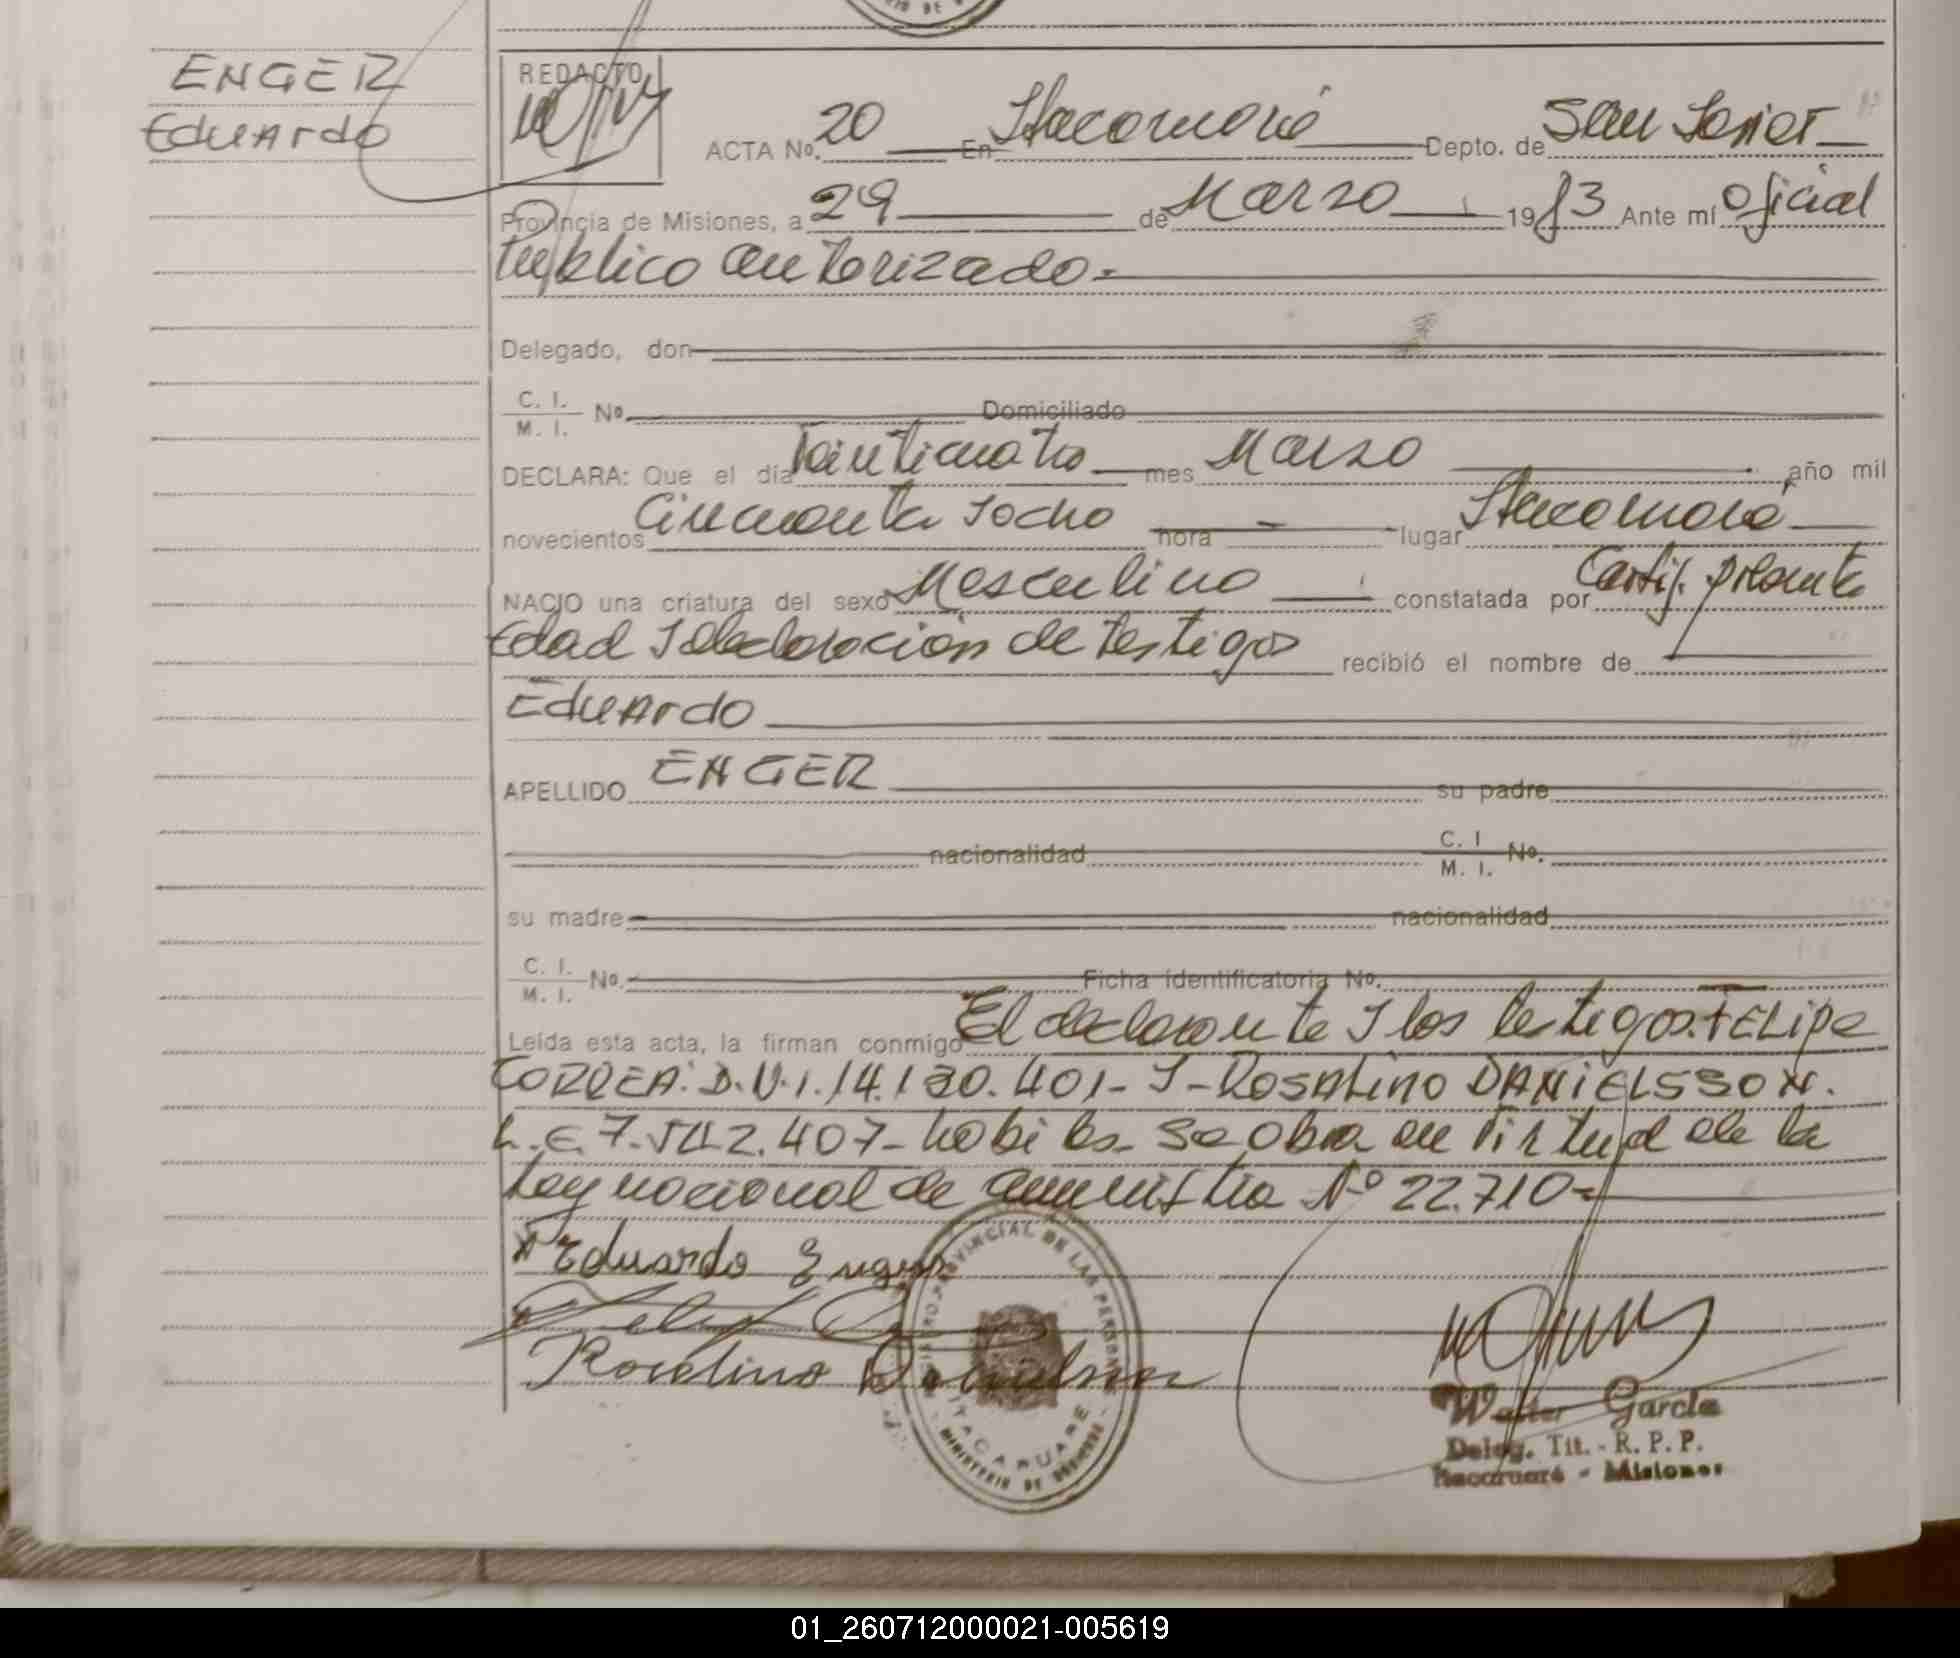 ENGER
Eduardo
REDACTO
ACTA No. 20 En Itacaruaré Depto. de San Javier
Provincia de Misiones, a 29 de Marzo 1983 Ante mí Oficial
Publico autorizado.-
Delegado, don
C. I. / M. I. No. Domiciliado
DECLARA: Que el día Veinticuatro mes Marzo año mil
novecientos Cincuenta y ocho hora - lugar Itacaruaré
NACIO una criatura del sexo Masculino constatada por Certif. presunta
Edad y declaración de testigos recibió el nombre de
Eduardo
APELLIDO ENGER su padre
nacionalidad C. I. / M. I. No.
su madre nacionalidad
C. I. / M. I. No. Ficha identificatoria No.
Leída esta acta, la firman conmigo El declarante y los testigos. FELIPE
CORREA: D.N.I. 14.120.401- y - ROSALINO DANIELSSON.
L.E. 7.542.407- hábiles- Se obra en virtud de la
Ley nacional de amnistia Nº 22.710=
Eduardo Enger
Rosalino Danielsson
PROVINCIAL DE LAS PERSONAS
ITACARUARE
MINISTERIO DE GOBIERNO
Walter García
Deleg. Tit. - R. P. P.
Itacaruaré - Misiones
01_260712000021-005619